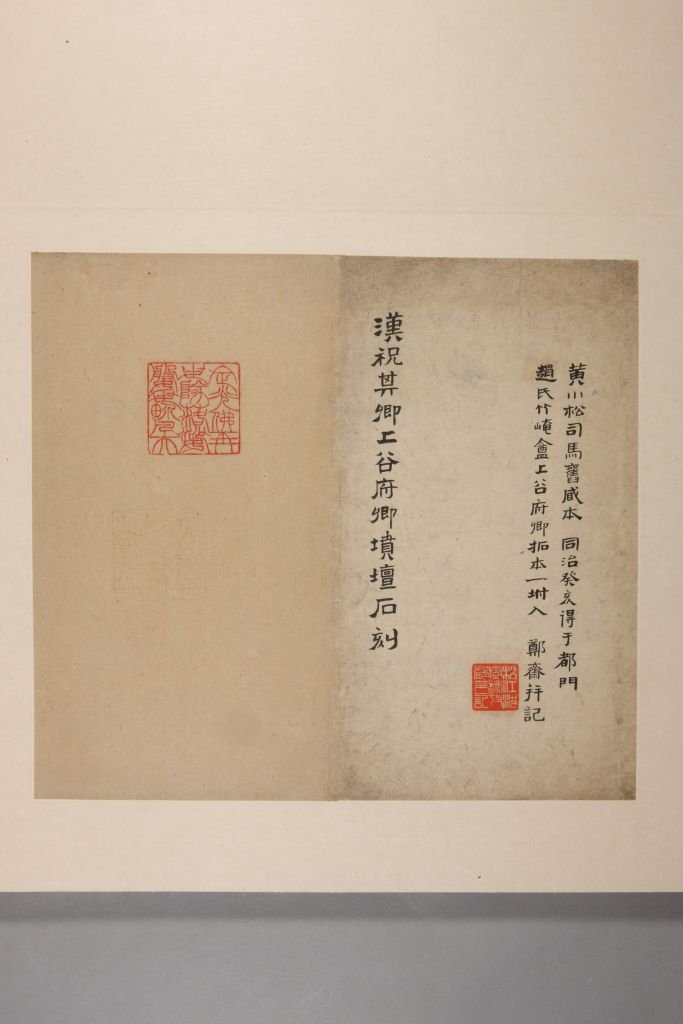 黃小松司馬舊臧本 同治癸亥得于都門
趙氏竹崦盦上谷府卿拓本一坿入 鄭齋幷記
漢祝其卿上谷府卿墳壇石刻